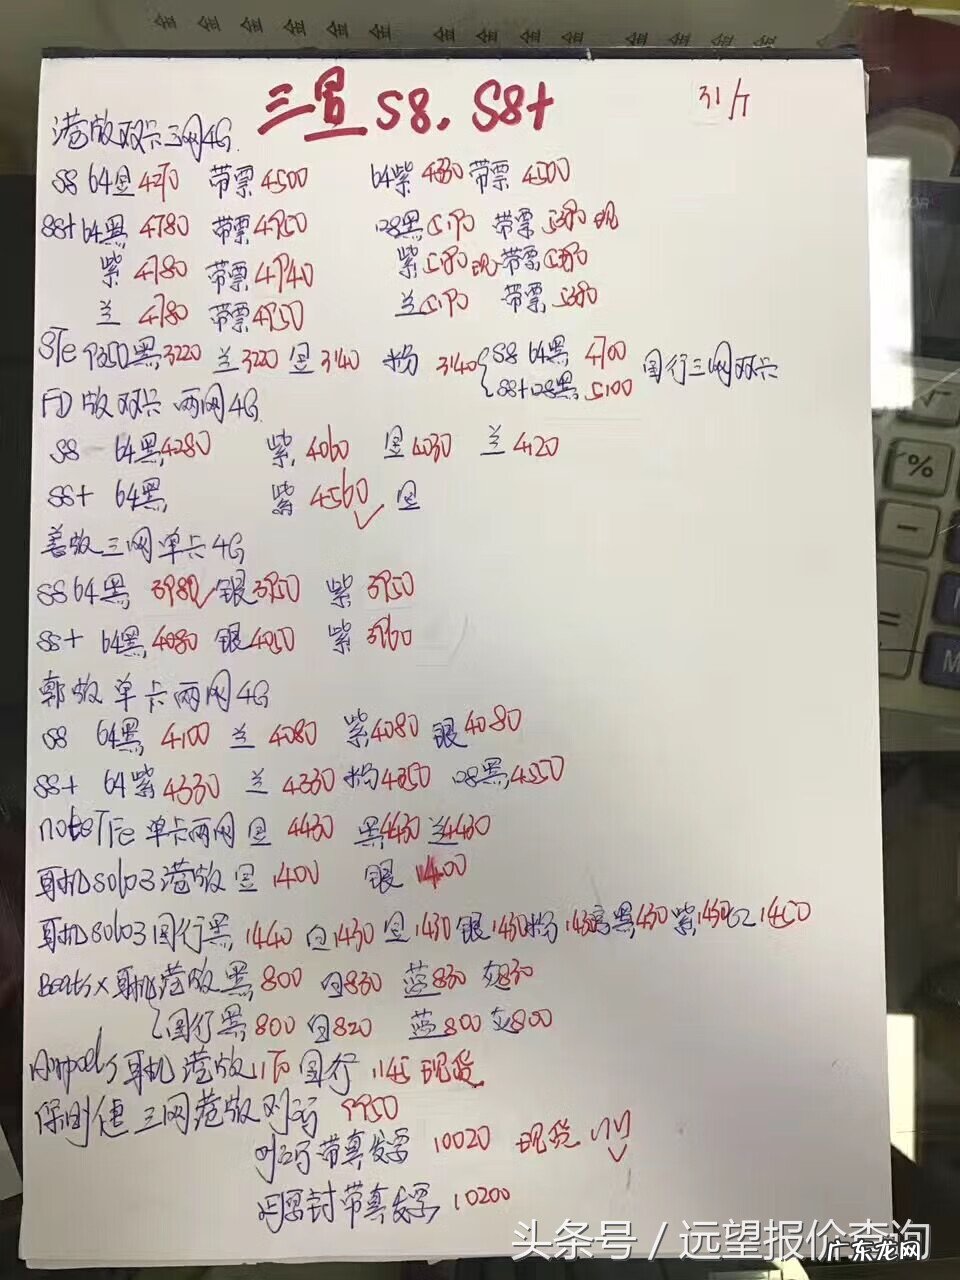 金 金 金 金 金 金 金 金 金 金 金 金 金
三星 S8. S8+
港版双卡三网4G
S8 64 带票4500 64紫 4330 带票4500
S8+64黑 4780 带票4950 128黑5190 带票 现
紫 4780 带票4940 紫 现 带票
兰 4780 带票4950 兰5190 带票
S7e 9350黑3220 兰3220 3140 粉 3140 S8 64黑 4700
S8+128黑 5100 国行三网双卡
版双卡两网4G
S8 64黑4280 紫 4060 4030 兰 4120
S8+ 64黑 紫 4560
美版三网单卡4G
S8 64黑 3980 银3950 紫 3950
S8+ 64黑4080 银4050 紫 3960
韩版单卡两网4G
S8 64黑 4100 兰 4080 紫4080 银4080
S8+ 64紫4330 兰 4330 粉4350 128黑4550
note7Fe 单卡两网 4430 黑4430 兰4430
耳机solo3港版 1400 银 1400
耳机solo3国行黑 1440 白1430 1430 银1430 粉1430 黑1430 紫1430 红1450
Beatsx耳机港版黑 800 白830 蓝830 灰830
国行黑 800 白820 蓝800 灰800
Airpods耳机港版 国行 1145 现货
保时捷三网港版对码 9950
对码带真发票 10020 现货
密封带真发票 10200
头条号 / 远望报价查询
广东龙网